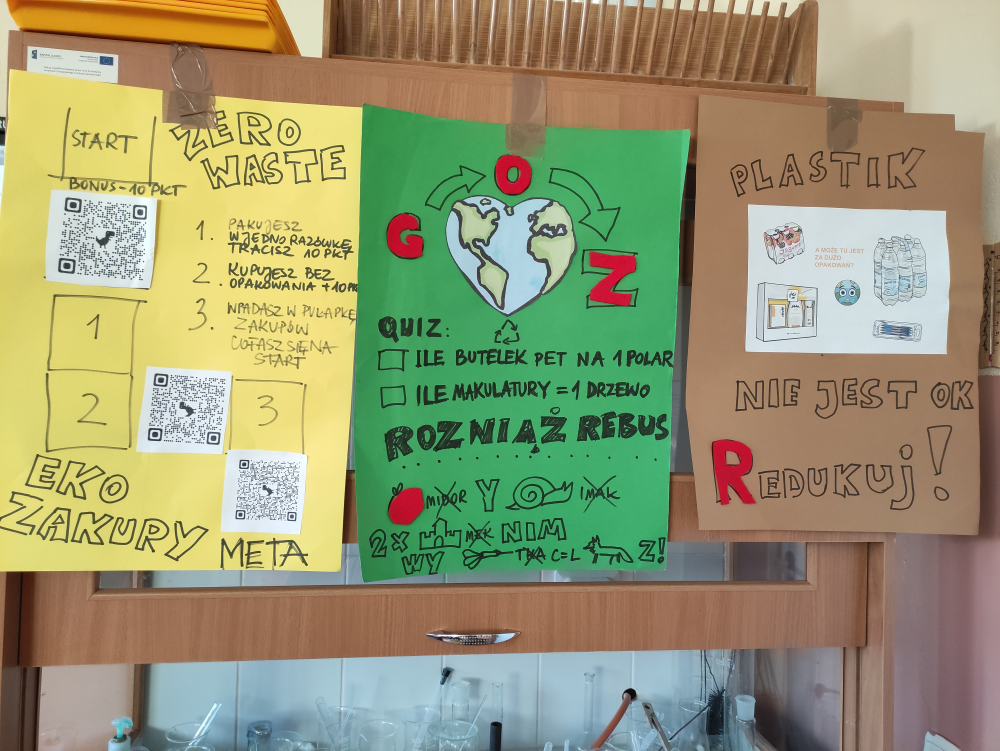 START
BONUS - 10 PKT
ZERO
WASTE
1. PAKUJESZ
W JEDNORAZÓWKĘ
TRACISZ 10 PKT
2. KUPUJESZ BEZ
OPAKOWANIA +10PK
3. WPADASZ W PUŁAPKĘ
ZAKUPÓW
COFASZ SIĘ NA
START
1
2
3
EKO
ZAKURY
META
G O Z
QUIZ:
ILE BUTELEK PET NA 1 POLAR
ILE MAKULATURY = 1 DRZEWO
ROZWIĄŻ REBUS
MIDOR Y IMAK
2x MEK NIM
WY TKA C=L Z!
PLASTIK
A MOŻE TU JEST
ZA DUŻO
OPAKOWAŃ?
NIE JEST OK
REDUKUJ!